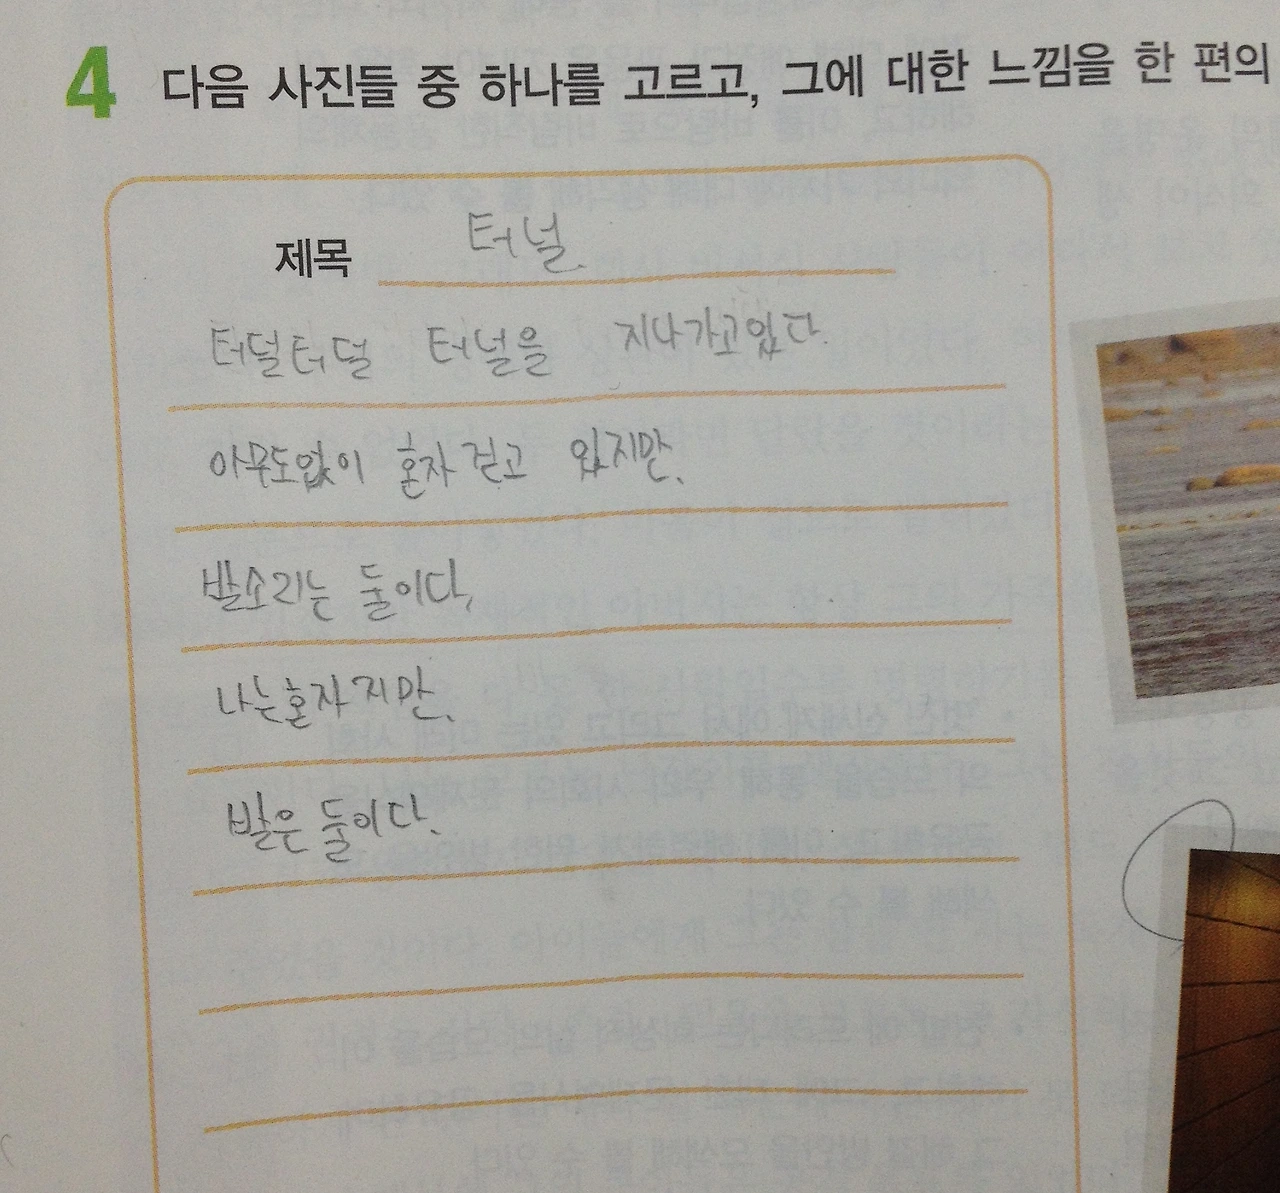 4 다음 사진들 중 하나를 고르고, 그에 대한 느낌을 한 편의
제목 터널
터덜터덜 터널을 지나가고있다.
아무도없이 혼자 걷고 있지만,
발소리는 둘이다,
나는혼자지만,
발은 둘이다.